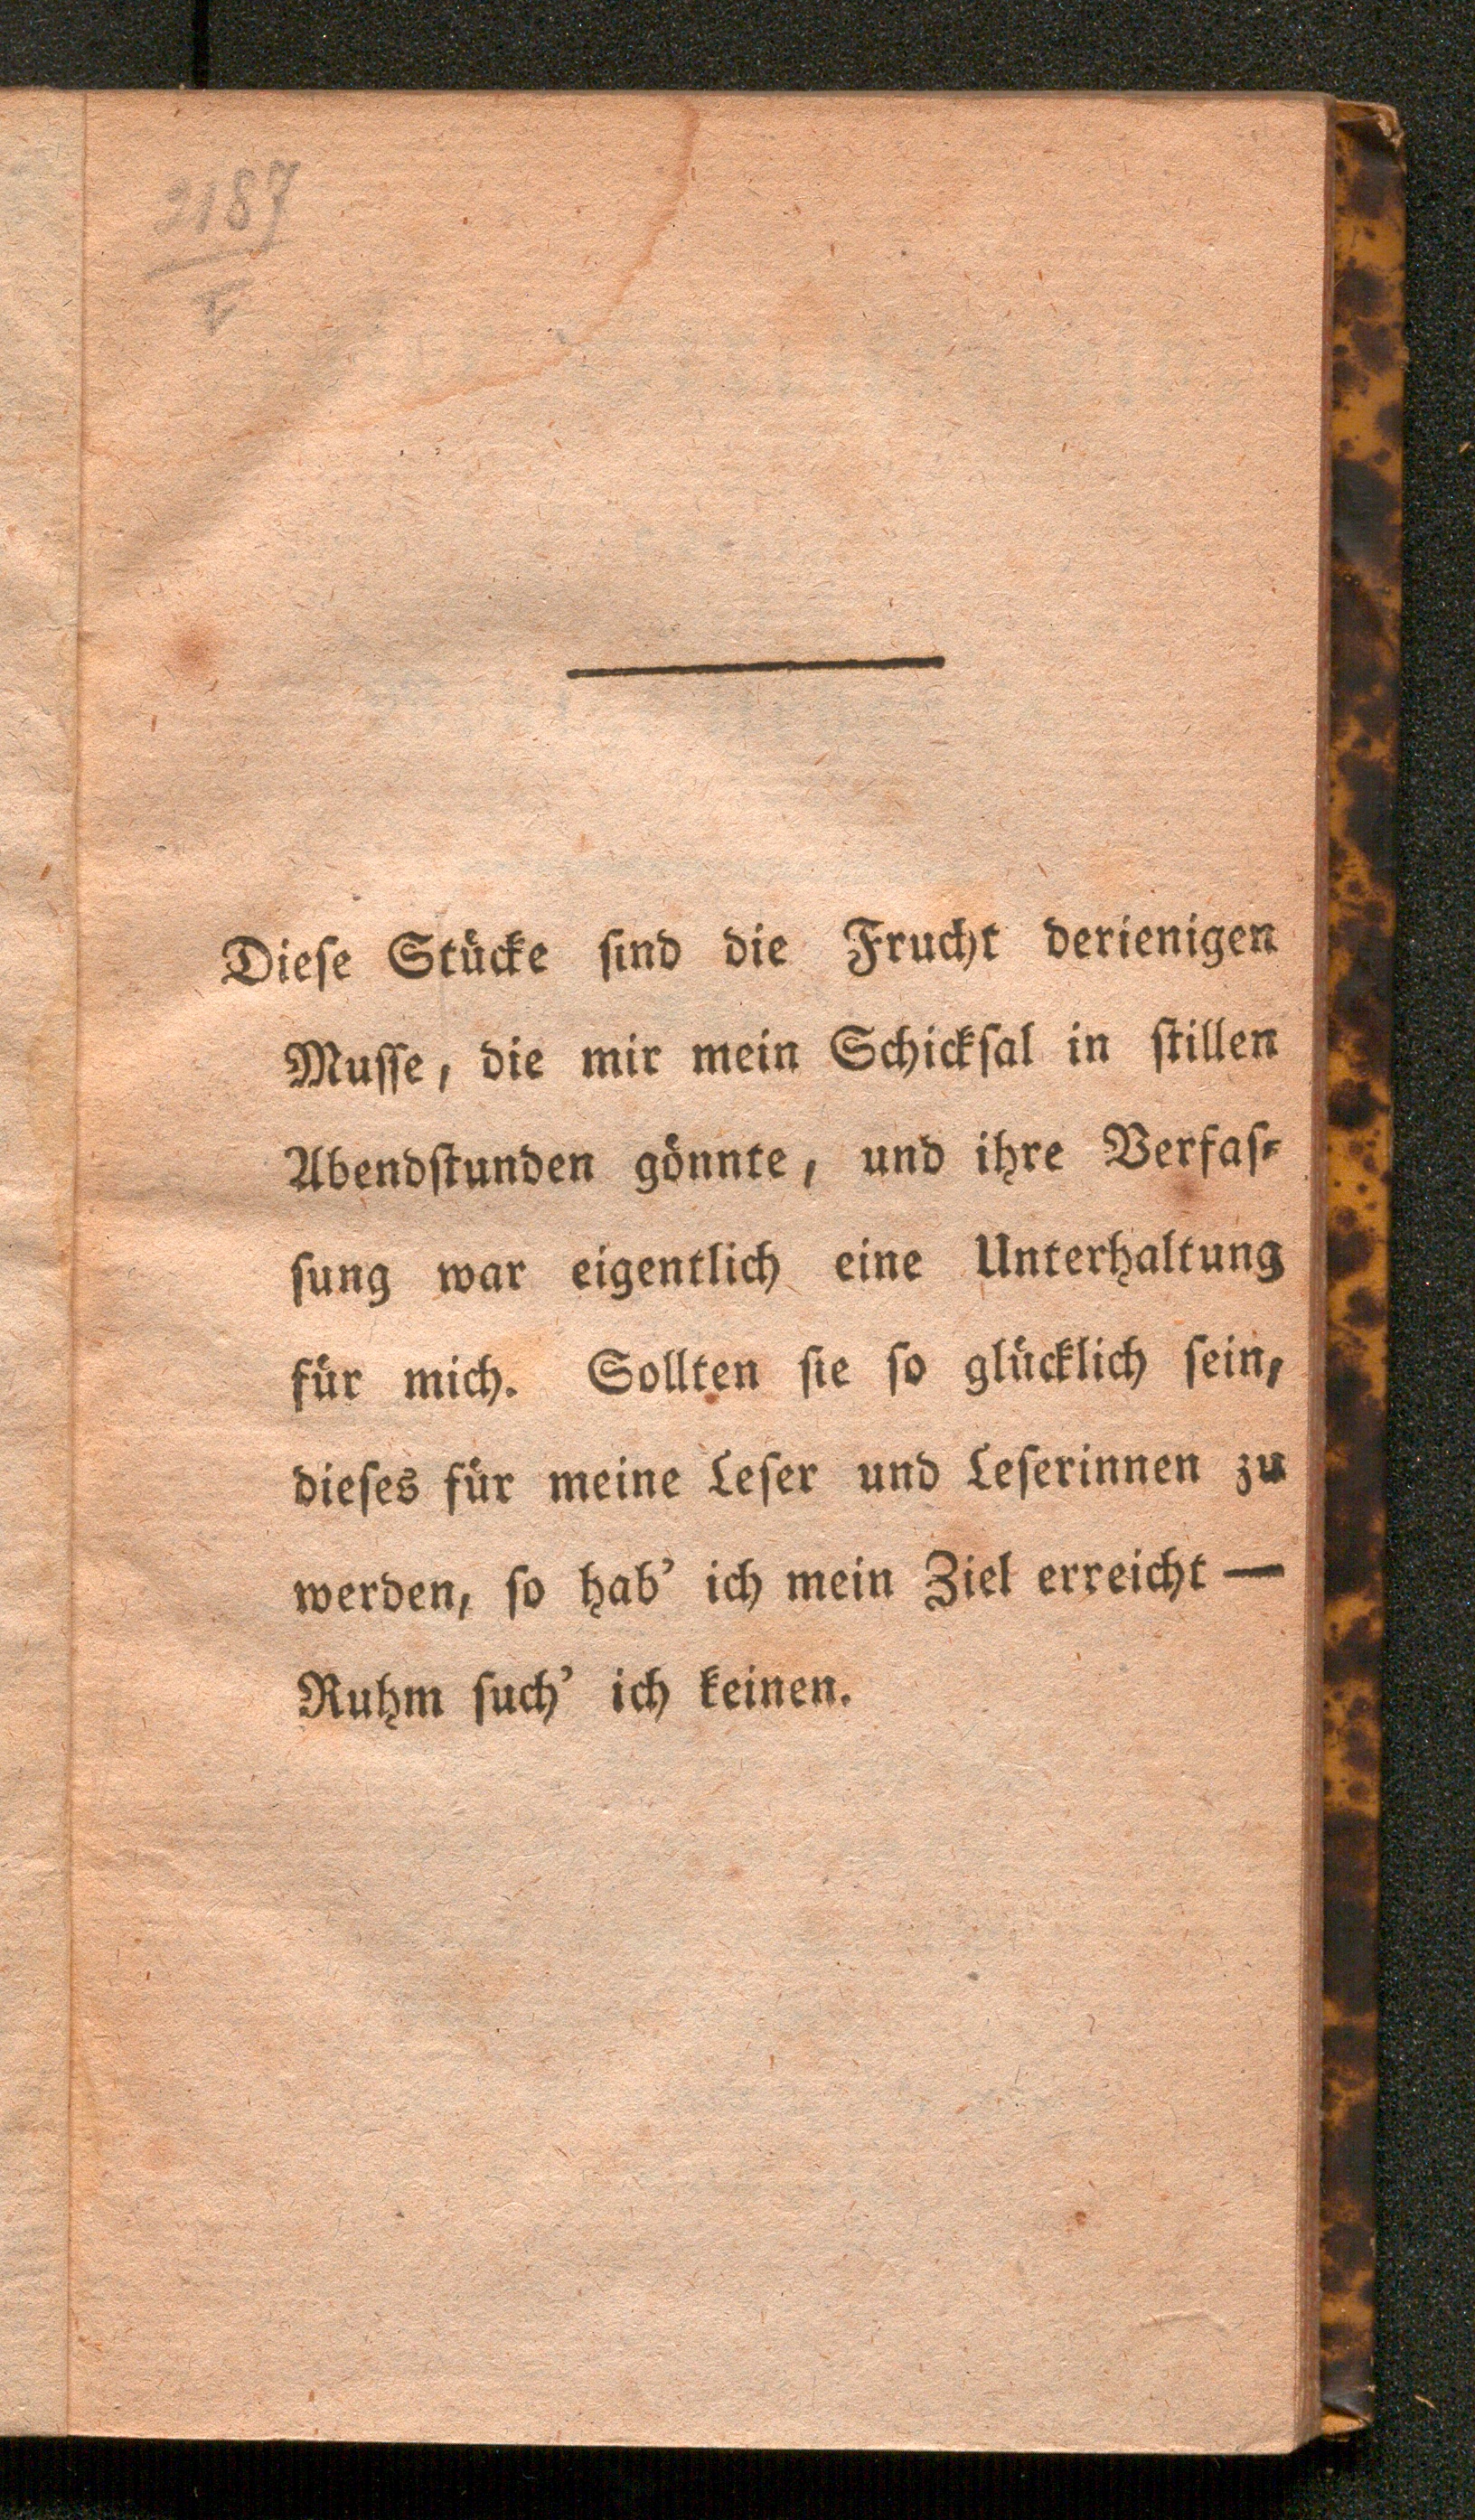 2187
Dieſe Stücke ſind die Frucht derienigen
Muſſe, die mir mein Schickſal in ſtillen
Abendſtunden gönnte, und ihre Verfaſ⸗
ſung war eigentlich eine Unterhaltung
für mich. Sollten ſie ſo glücklich ſein,
dieſes für meine Leſer und Leſerinnen zu
werden, ſo hab’ ich mein Ziel erreicht —
Ruhm ſuch’ ich keinen.